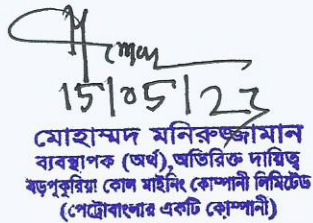 15/05/23
মোহাম্মদ মনিরুজ্জামান
ব্যবস্থাপক (অর্থ),অতিরিক্ত দায়িত্ব
বড়পুকুরিয়া কোল মাইনিং কোম্পানী লিমিটেড
(পেট্রোবাংলার একটি কোম্পানী)